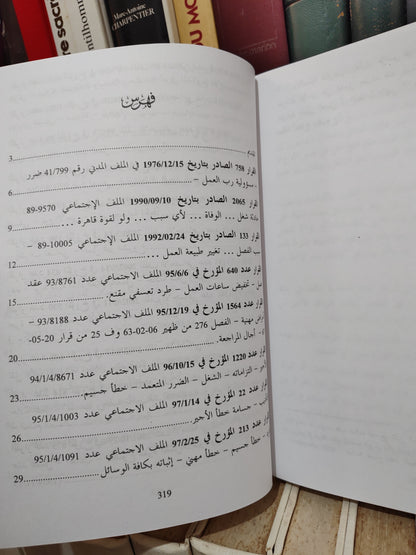 Marc-Antoine
CHARPENTIER
فهرس
3
القرار 758 الصادر بتاريخ 1976/12/15 في الملف المدني رقم 41/799 ضرر
- مسؤولية رب العمل –
6
القرار 2065 الصادر بتاريخ 1990/09/10 الملف الإجتماعي 9570-89
حادثة شغل ... الوفاة ... لأي سبب ... ولو لقوة قاهرة ...
9
القرار 133 الصادر بتاريخ 1992/02/24 الملف الإجتماعي 10005-89
سبب الفصل ... تغيير طبيعة العمل
12
قرار عدد 640 المؤرخ في 95/6/6 الملف الاجتماعي عدد 93/8761 عقد
– تخفيض ساعات العمل – طرد تعسفي مقنع.
15
قرار عدد 1564 المؤرخ في 95/12/19 الملف الاجتماعي عدد 93/8188
مهنية – الفصل 276 من ظهير 06-02-63 وف 25 من قرار 20-05-
- آجال المراجعة.
20
قرار عدد 1220 المؤرخ في 96/10/15 الملف الاجتماعي عدد 94/1/4/8671
– التزاماته – الشغل – الضرر المتعمد – خطأ جسيم.
23
قرار عدد 22 المؤرخ في 97/1/14 الملف الاجتماعي عدد 95/1/4/1003
– جسامة خطأ الأجير.
26
قرار عدد 213 المؤرخ في 97/2/25 الملف الاجتماعي عدد 95/1/4/1091
– خطأ جسيم – خطأ مهني – إثباته بكافة الوسائل
29
319